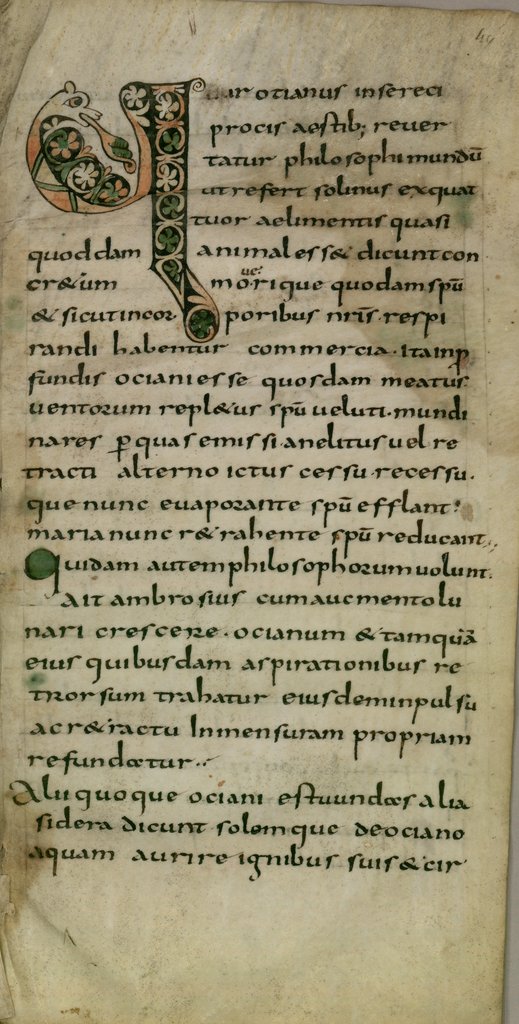 44
Quur otianus in se reci
procis aestib; rever
tatur philosophi mundū
ut refert solinus ex quat
tuor aelimentis quasi
quoddam animal esse & dicunt con
cr&um moveri que quodam spū
& sicut in cor poribus nr̄is respi
randi habentur commercia. ita in p
fundis ociani esse quosdam meatus
ventorum repl&us spū veluti mundi
nares p̱ quas emissi anelitus vel re
tracti alterno ictus cessu recessu.
que nunc evaporante spū efflant:
maria nunc r&rahente spū reducant.,
Quidam autem philosophorum volunt.
Ait ambrosius cum aucmento lu
nari crescere. ocianum & tamquā
eius quibusdam aspirationibus re
trorsum trahatur eiusdem inpulsu
ac r&ractu In mensuram propriam
refundatur..
Alii quoque ociani estu undas alia
sidera dicunt solemque de ociano
aquam aurire ignibus suis & cir